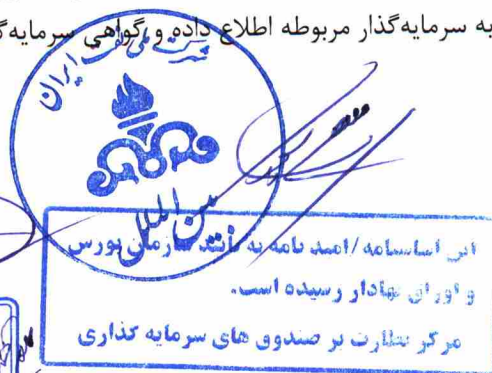 به سرمایه‌گذار مربوطه اطلاع داده و گواهی سرمایه‌گ
شرکت ملی نفت ایران
بین الملل
این اساسنامه/امید نامه به تائید سازمان بورس
و اوراق بهادار رسیده است.
مرکز نظارت بر صندوق های سرمایه گذاری